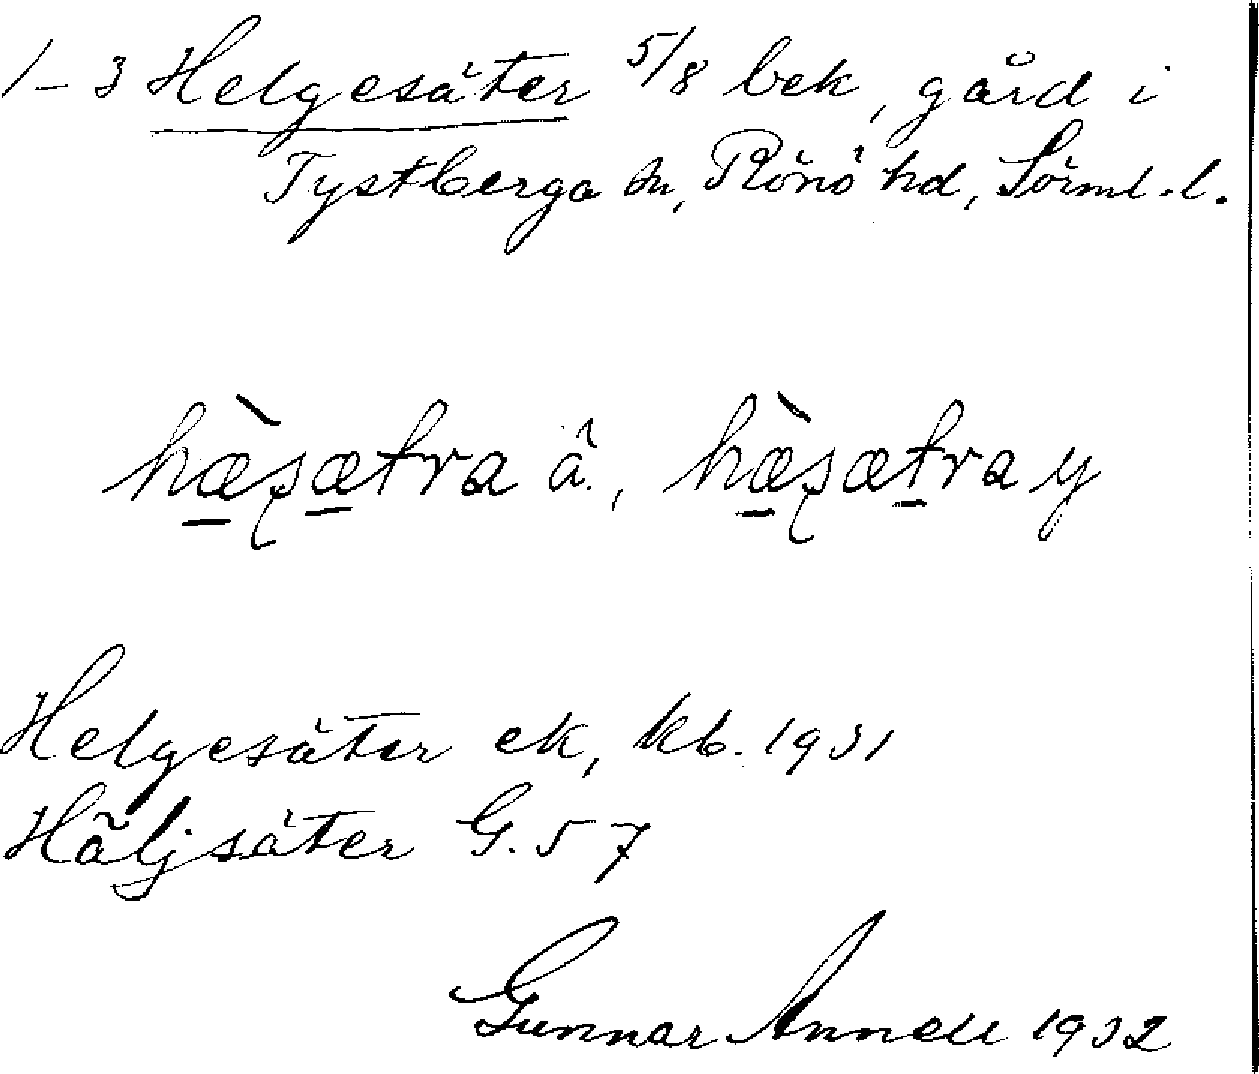 1-3 Helgesäter 5/8 bek, gård i
Tystberga sn, Rönö hd, Sörml. l.
hæ̀sætra â, hæ̀sætra y
Helgesäter ek, kb. 1931
Häljsäter G. 57
Gunnar Annell 1932